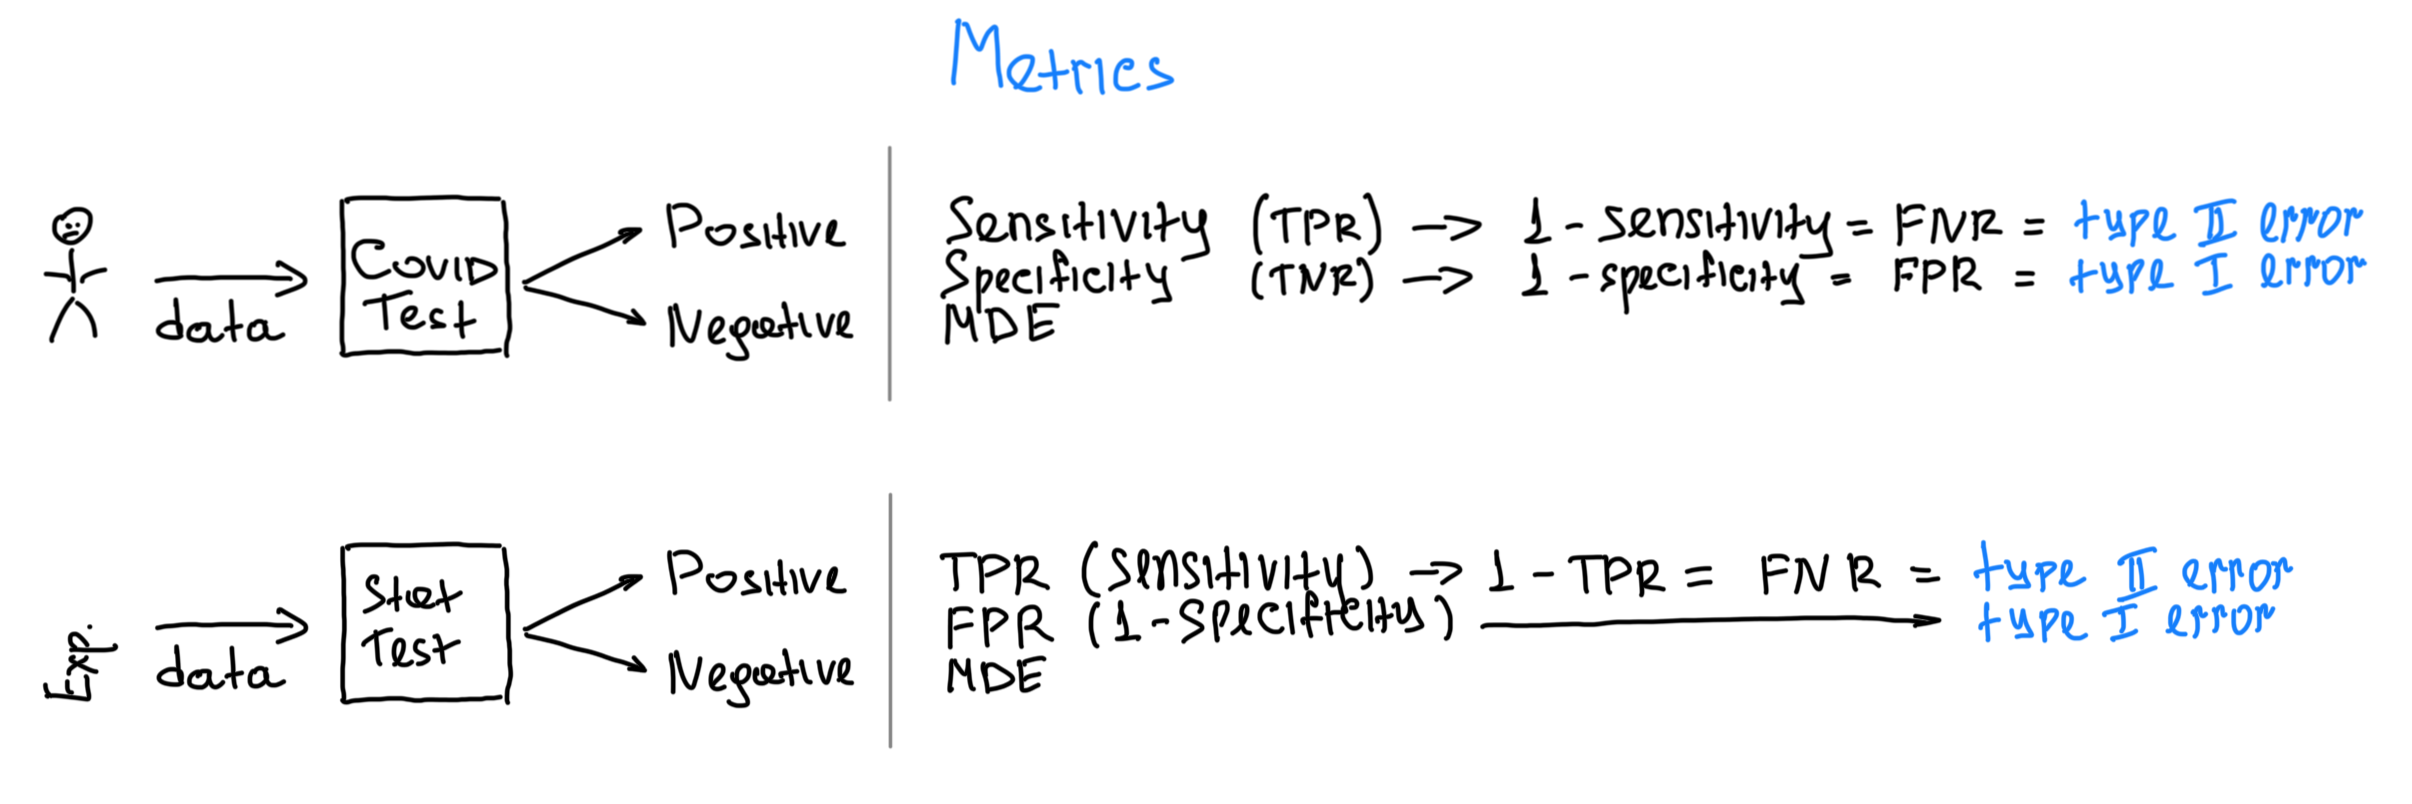 Metrics
Covid
Test
data
Positive
Negative
Sensitivity (TPR) → 1 - sensitivity = FNR = type II error
Specificity (TNR) → 1 - specificity = FPR = type I error
MDE
Exp.
data
Stat
Test
Positive
Negative
TPR (sensitivity) → 1 - TPR = FNR = type II error
FPR (1 - specificity) → type I error
MDE